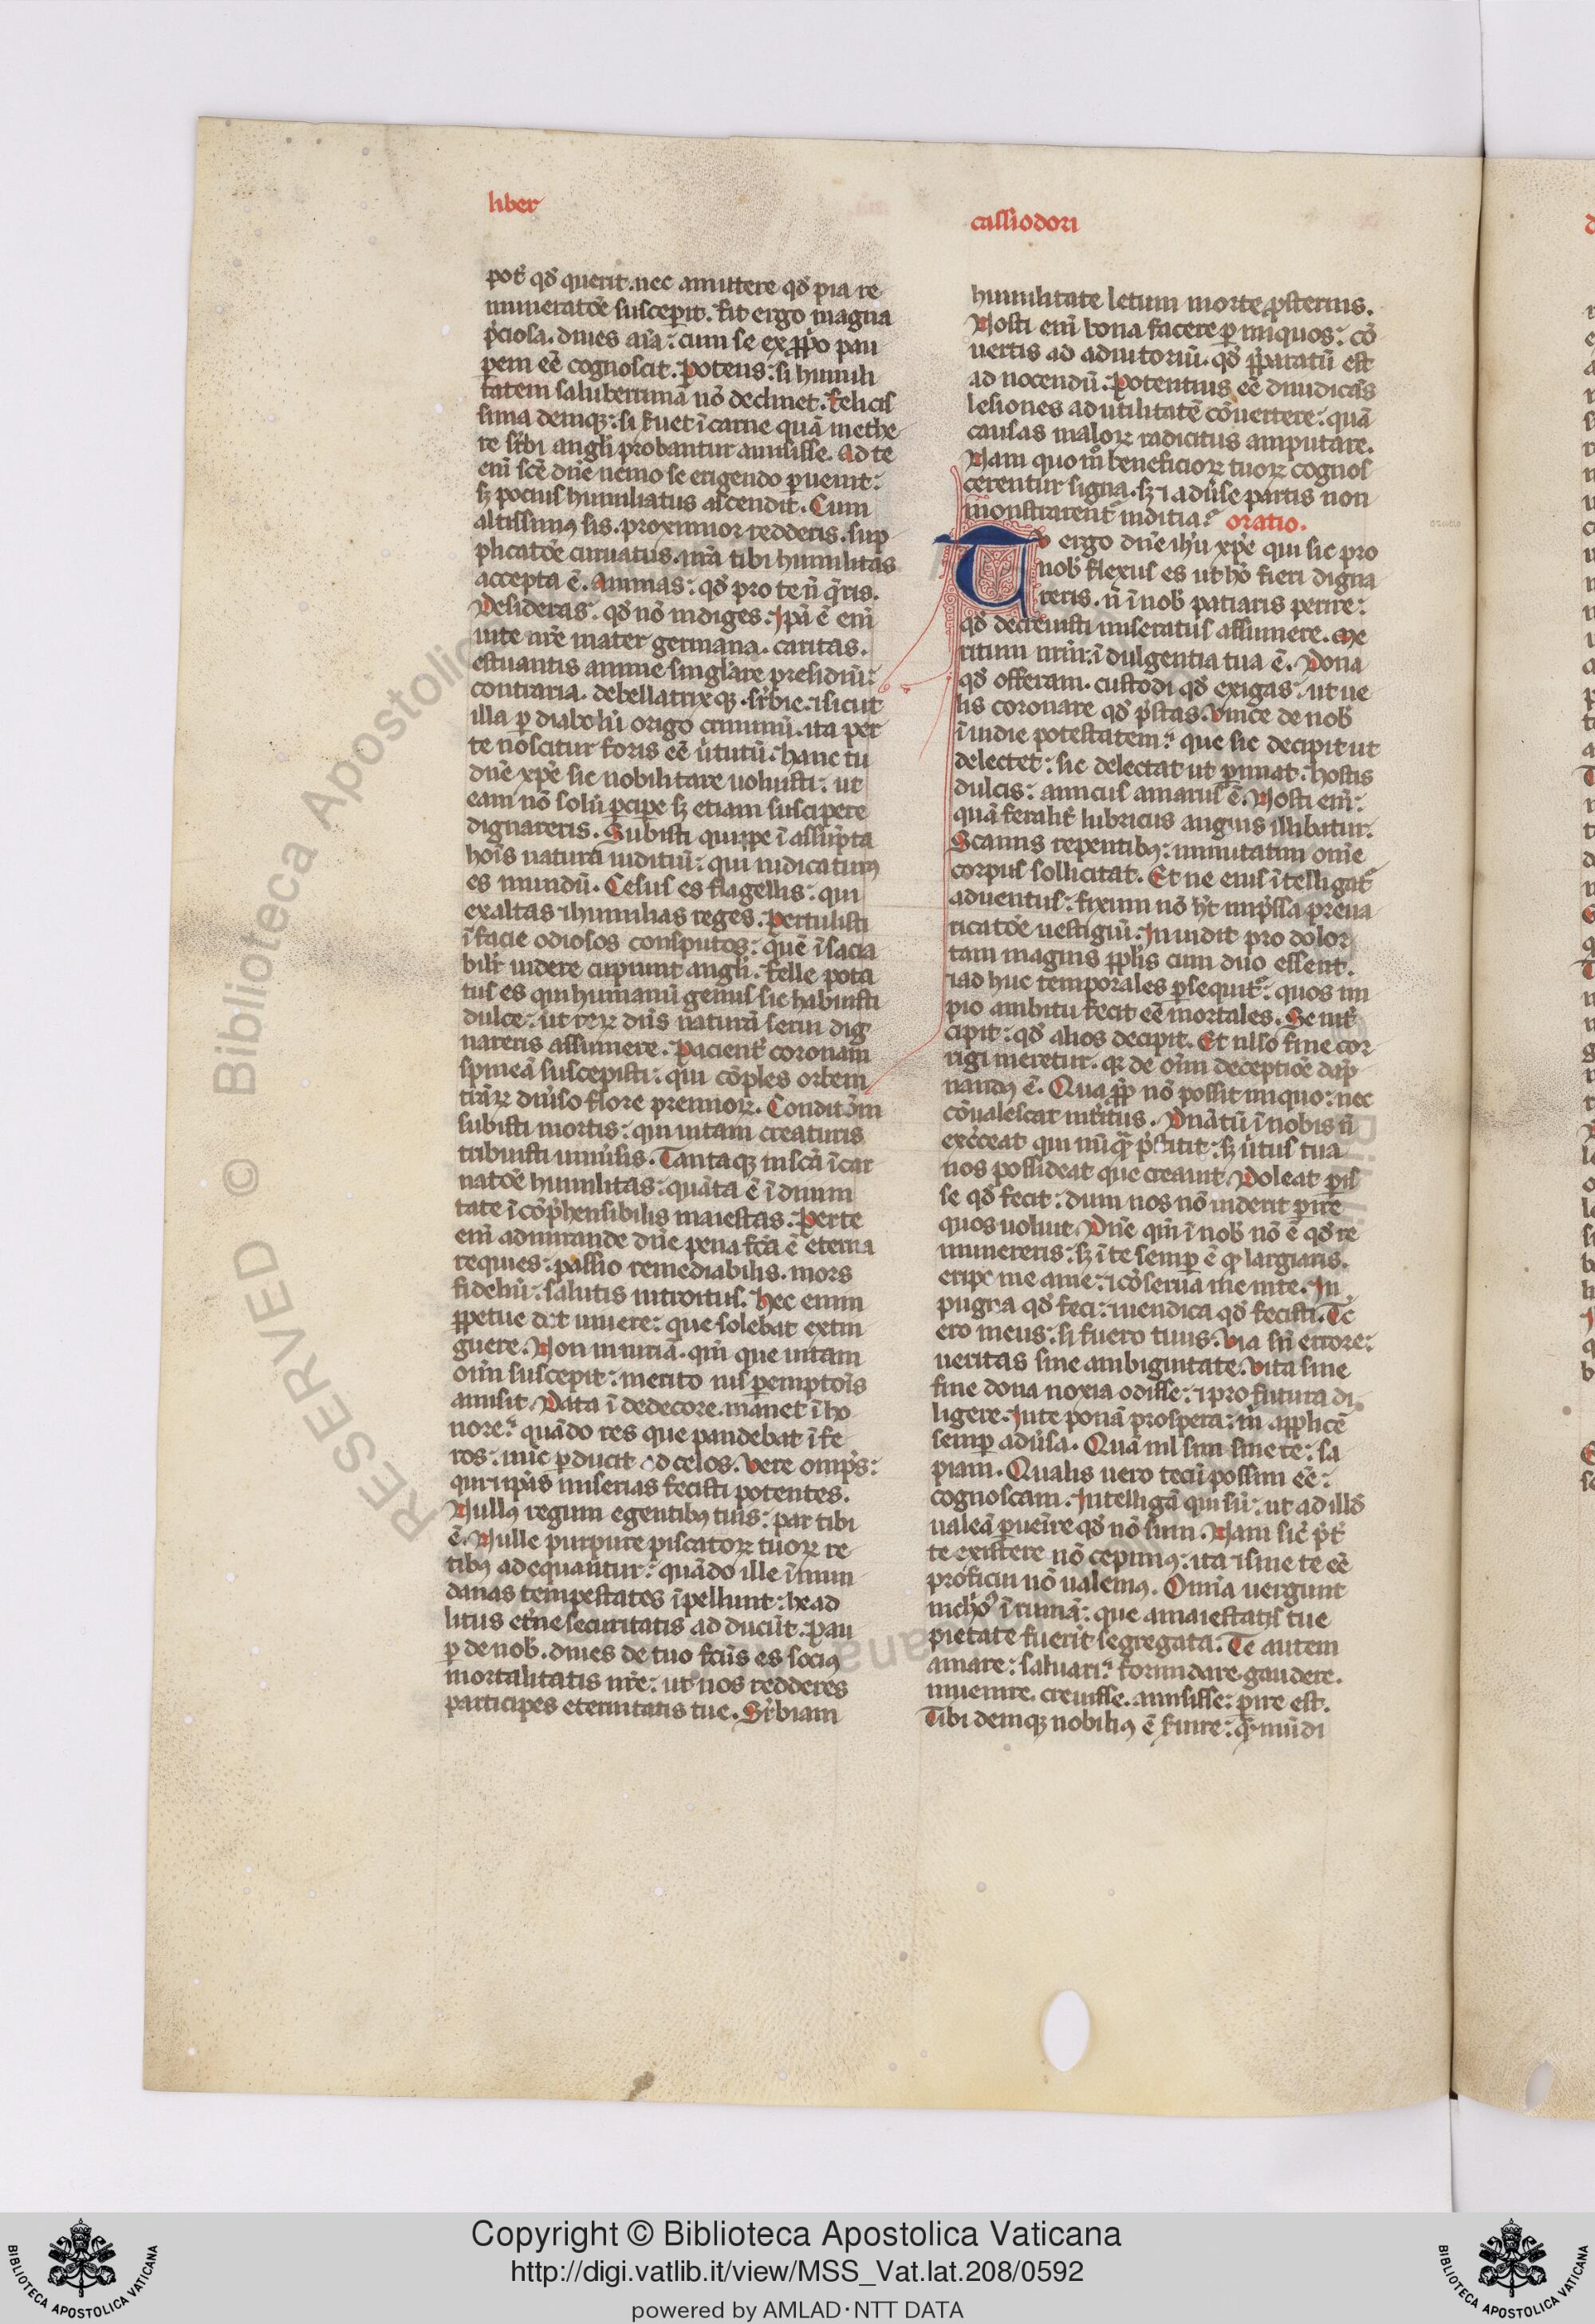 liber
pot̛ qd̛ querit. nec amittere qd̛ pia re
muneratōe suscepit. fit ergo magna
p̄ciosa. diues aīa: cum se ex ꝓp̄o pau
ꝑem eē cognoscit. Potens: si humili
tatem saluberrimā nō declinet. Felicis
sima deniqꝫ: si s̛uet ī carne quā inethe
re sr̄bi angl̄i probantur amisisse. Ad te
enī sc̄e dn̄e nemo se erigendo ꝑuenit:
sꝫ pocius humiliatus ascendit. Cum
altissimꝰ sis. proximior redderis. sup
plicatōe curuatus. nr̄a tibi humilitas
accepta ē. Animas: qd̛ pro te n̄ q̄ris.
Desideras: qd̛ nō indiges. Ip̄a ē enī
uite nr̄e mater germana. caritas.
estuantis anime singl̄are presidiū:
contraria. debellatrixqꝫ. sr̄bie. ⁊ sicut
illa ꝑ diabolū origo criminū. ita per
te noscitur foris eē ưtutū. Hanc tu
dn̄e xp̄e sic nobilitare uoluisti: ut
eam nō solū p̄cipe sꝫ etiam suscipere
dignareris. Subisti quippe ī assūpta
hoīs natura iudiciū: qui iudicaturꝰ
es mundū. Cesus es flagellis: qui
exaltas ⁊ humilias reges. Pertulisti
ī facie odiosos consputos: quē īsacia
bilit̛ uidere cupiunt angl̄i. Felle pota
tus es qui humanū genus sic habuisti
dulce: ut reꝝ dn̄s naturā serui dig
nareris assumere. Pacient̛ coronam
spineā suscepisti: qui cōples orbem
tr̄aꝝ diưso flore premioꝝ. Conditōm
subisti mortis: qui uitam creaturis
tribuisti uniưsis. Tantaqꝫ in sc̄a īcar
natōe humilitas: quāta ē ī diuini
tate ī cōp̄hensibilis maiestas. Per te
enī admirande dn̄e pena fc̄a ē eterna
requies: passio remediabilis. mors
fideliū: salutis introitus. Hec enim
ꝑpetue dat uiuere: que solebat extin
guere. Non iniuriā. qm̄ que uitam
oīm suscepit: merito ius ꝑemptōis
amisit. Data ī dedecore. manet ī ho
nore: quādo res que pandebat īfe
ros: nūc ꝑducit ad celos. Vere omp̄s:
qui ip̄as miserias fecisti potentes.
Nullꝰ regum egentibꝰ tuis: par tibi
ē. Nulle purpure piscatoꝝ tuoꝝ re
tibꝰ adequantur: quādo ille ī mun
danas tempestates īpellunt: he ad
litus etne securitatis adducūt. Pau
ꝑ de nob̛. diues de tuo fc̄us es sociꝰ
mortalitatis nr̄e: ut nos redderes
participes eternitatis tue. Sr̄biam
cassiodori
humilitate letum morte ꝓsternis.
Nosti enī bona facere ꝑ iniquos: cō
uertis ad adiutoriū. qd̛ p̄paratū est
ad nocendū. Potentius eē diiudicas
lesiones ad utilitatē cōuertere: quā
causas maloꝝ radicitus amputare.
Nam quom̊ beneficioꝝ tuoꝝ cognos
cerentur signa. sꝫ ⁊ adưse partis non
monstrarent̛ inditia? oratio.
Tv ergo dn̄e ih̄u xp̄e qui sic pro
nob̛ flexus es ut hō fieri digna
reris. n̄ ī nob̛ patiaris perire:
qd̛ decreuisti miseratus assumere. Me
ritum nr̄m: īdulgentia tua ē. Dona
qd̛ offeram. custodi qd̛ exigas: ut ue
lis coronare qd̛ p̄stas. Vince de nob̛
īuidie potestatem: que sic decipit ut
delectet: sic delectat ut ꝑimat. Hostis
dulcis: amicus amarus ē. Nosti enī:
quā feralit̛ lubricus anguis illibitur.
Scamis repentibꝰ: minutatim om̄e
corpus sollicitat. Et ne eius ītelligat̛
aduentus: fixum nō h̛t imp̄ssa preua
ricatōe uestigiū. Inuidit pro dolor
tam magnis ꝓplis cum duo essent.
⁊ ad huc temporales ꝑsequit̛: quos im
pio ambitu fecit eē mortales. Se nit̛
cipit: qd̛ alios decipit. Et nullo fine cor
rigi meretur. qꝛ de oīm deceptōe dāp
nandꝰ ē. Qua ꝓp̄ nō possit iniquo: nec
cōualescat intītus. Dn̄atū ī nobis n̄
exc̄eat qui nūqꝫ p̄stitit: sꝫ ưtus tua
nos possideat que creauit. Doleat ꝑis
se qd̛ fecit: dum nos nō uiderit ꝑire
quos uoluit. Dn̄e qm̄ ī nob̛ nō ē qd̛ re
munereris: sꝫ ī te semꝑ ē qd̛ largiaris.
eripe me a me: ⁊ cōserua me in te. In
pugna qd̛ feci: uiendica qd̛ fecisti. Tc̄
ero meus: si fuero tuus. Via sn̄ errore:
ueritas sine ambiguitate. Vita sine
fine dona noxia odisse: ⁊ pro futura di
ligere. In te ponā prospera: m̄ applicē
semꝑ adưsa. Quā nil sim sine te: sa
piam. Qualis uero tecū possim eē:
cognoscam. Intelligā qui sū: ut ad illd̛
ualeā ꝑuenīre qd̛ nō sum. Nam sic̄ p̄t̛
te existere nō cepimꝰ: ita ⁊ sine te eē
proficui nō ualemꝰ. Omnia uergunt
īruinā: que a maiestatis tue
pietate fuerīt segregata. Te autem
amare: saluari: formidare gaudere.
inuenire. creuisse. amisisse: ꝑire est.
Tibi deniqꝫ nobiliꝰ ē s̛uire: qꝫ mūdi
Copyright © Biblioteca Apostolica Vaticana
http://digi.vatlib.it/view/MSS_Vat.lat.208/0592
powered by AMLAD·NTT DATA